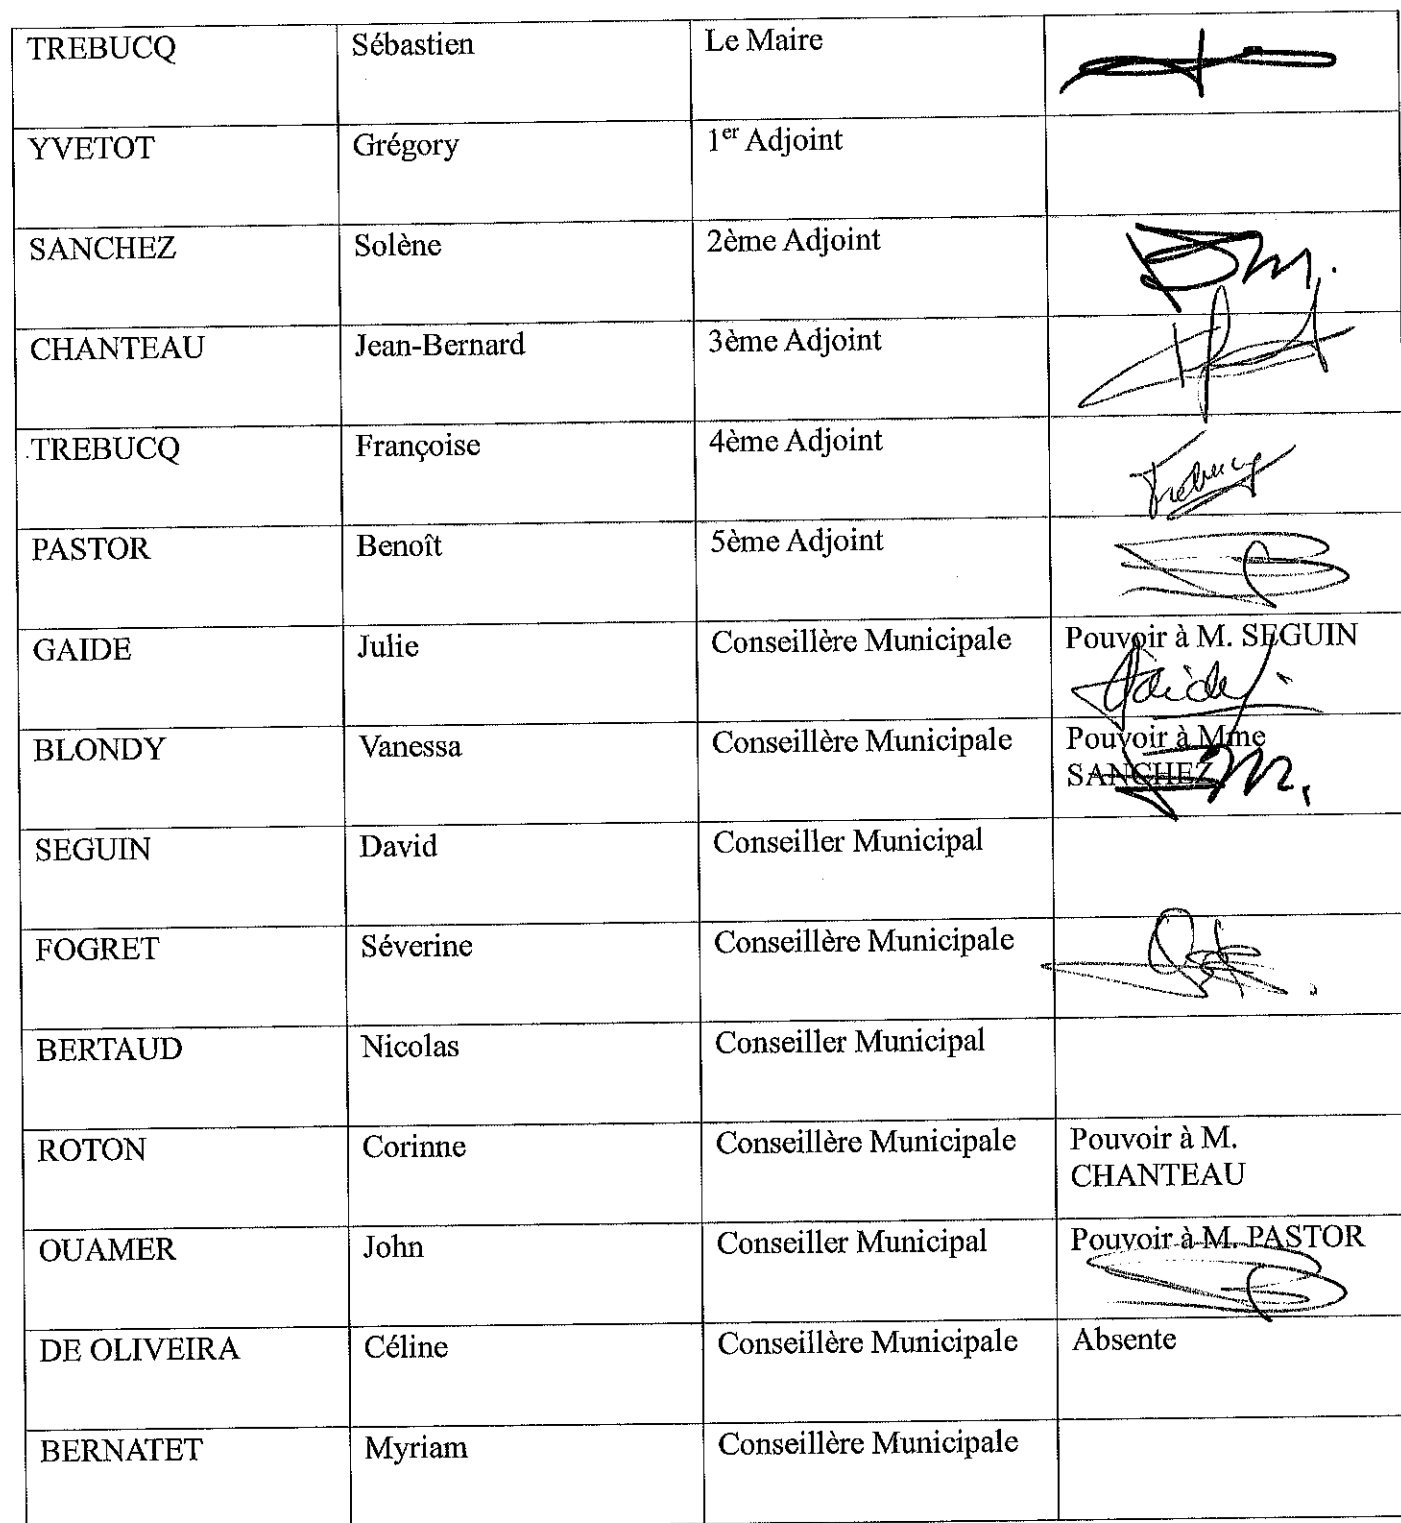 TREBUCQ Sébastien Le Maire
YVETOT Grégory 1er Adjoint
SANCHEZ Solène 2ème Adjoint
CHANTEAU Jean-Bernard 3ème Adjoint
TREBUCQ Françoise 4ème Adjoint Trebucq
PASTOR Benoît 5ème Adjoint
GAIDE Julie Conseillère Municipale Pouvoir à M. SEGUIN
Gaide
BLONDY Vanessa Conseillère Municipale Pouvoir à Mme
SANCHEZ
SEGUIN David Conseiller Municipal
FOGRET Séverine Conseillère Municipale
BERTAUD Nicolas Conseiller Municipal
ROTON Corinne Conseillère Municipale Pouvoir à M.
CHANTEAU
OUAMER John Conseiller Municipal Pouvoir à M. PASTOR
DE OLIVEIRA Céline Conseillère Municipale Absente
BERNATET Myriam Conseillère Municipale